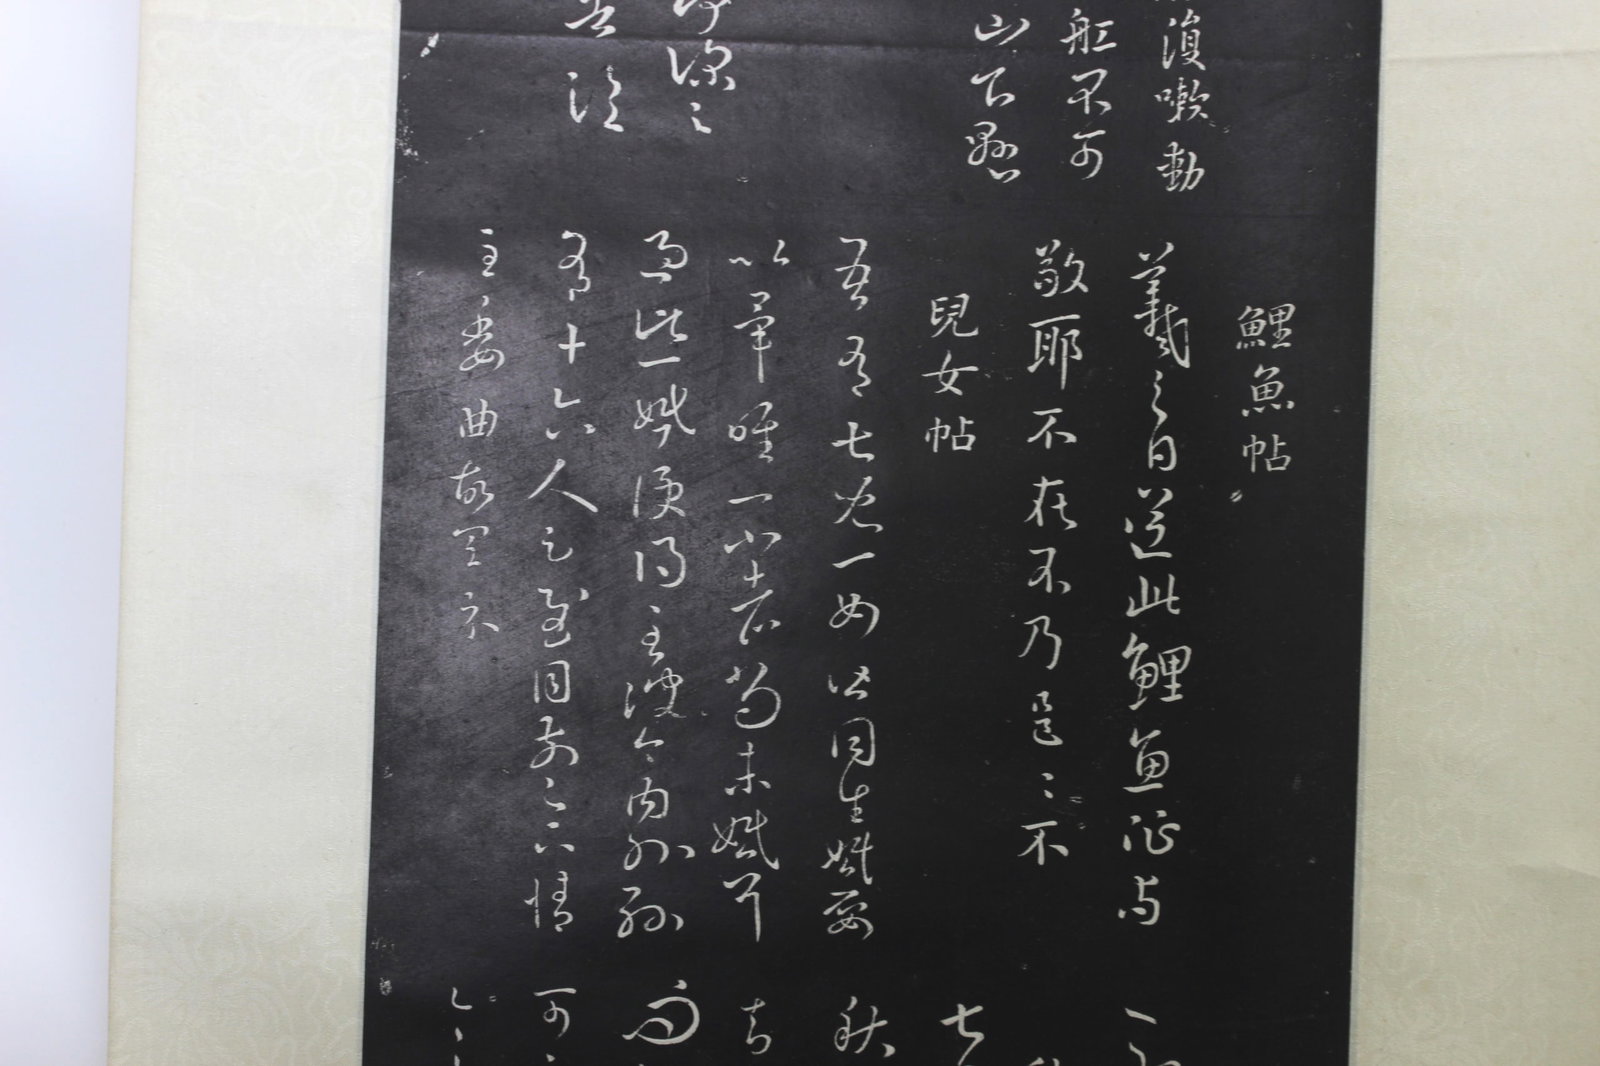 復嗽動
舡不可
山下縣
深之
鯉魚帖
羲之白送此鯉魚征与
敬耶不在不乃是〻不
兒女帖
吾有七兒一女皆同生婚娶
以畢唯一小者尚未婚耳
過此一婚便得至彼今內外孫
有十六人足慰目前足下情
至委曲故具示
七
秋
可